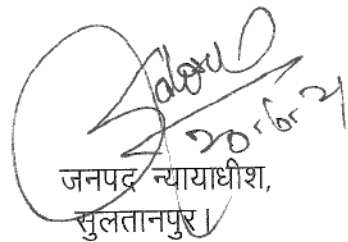 20-6-21
जनपद न्यायाधीश,
सुलतानपुर।